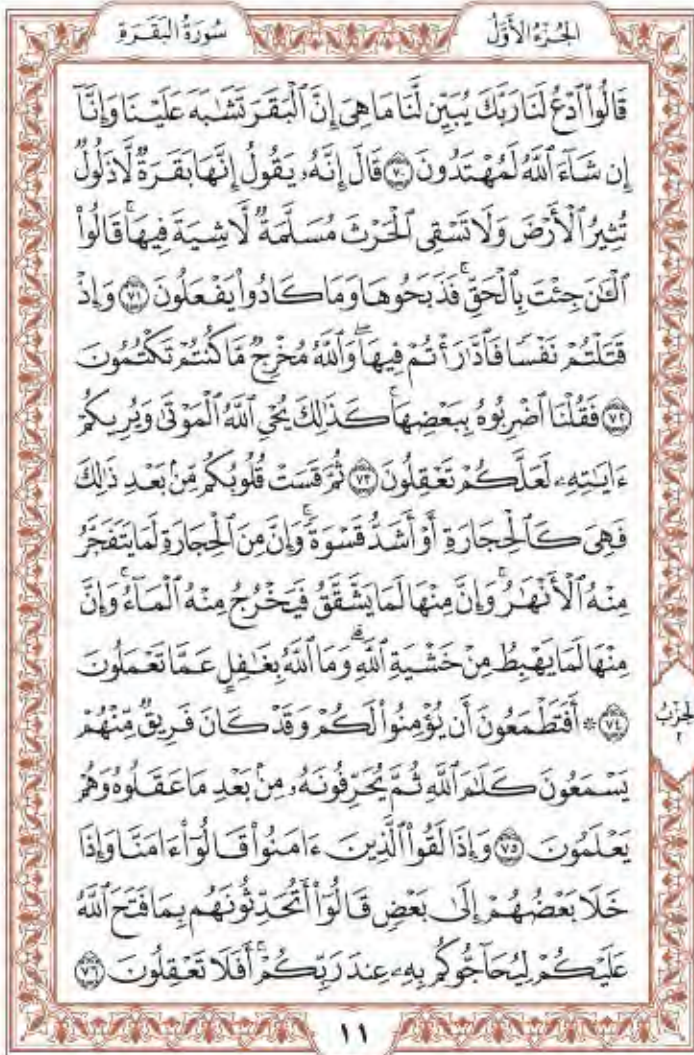 الجُزْءُ الأَوَّلُ
سُورَةُ البَقَرَةِ
قَالُوا۟ ٱدْعُ لَنَا رَبَّكَ يُبَيِّن لَّنَا مَا هِىَ إِنَّ ٱلْبَقَرَ تَشَٰبَهَ عَلَيْنَا وَإِنَّآ
إِن شَآءَ ٱللَّهُ لَمُهْتَدُونَ ٧٠ قَالَ إِنَّهُۥ يَقُولُ إِنَّهَا بَقَرَةٌ لَّا ذَلُولٌ
تُثِيرُ ٱلْأَرْضَ وَلَا تَسْقِى ٱلْحَرْثَ مُسَلَّمَةٌ لَّا شِيَةَ فِيهَاۚ قَالُوا۟
ٱلْـَٰٔنَ جِئْتَ بِٱلْحَقِّۚ فَذَبَحُوهَا وَمَا كَادُوا۟ يَفْعَلُونَ ٧١ وَإِذْ
قَتَلْتُمْ نَفْسًا فَٱدَّٰرَْٰٔتُمْ فِيهَاۖ وَٱللَّهُ مُخْرِجٌ مَّا كُنتُمْ تَكْتُمُونَ
٧٢ فَقُلْنَا ٱضْرِبُوهُ بِبَعْضِهَاۚ كَذَٰلِكَ يُحْىِ ٱللَّهُ ٱلْمَوْتَىٰ وَيُرِيكُمْ
ءَايَٰتِهِۦ لَعَلَّكُمْ تَعْقِلُونَ ٧٣ ثُمَّ قَسَتْ قُلُوبُكُم مِّنۢ بَعْدِ ذَٰلِكَ
فَهِىَ كَٱلْحِجَارَةِ أَوْ أَشَدُّ قَسْوَةًۚ وَإِنَّ مِنَ ٱلْحِجَارَةِ لَمَا يَتَفَجَّرُ
مِنْهُ ٱلْأَنْهَٰرُۚ وَإِنَّ مِنْهَا لَمَا يَشَّقَّقُ فَيَخْرُجُ مِنْهُ ٱلْمَآءُۚ وَإِنَّ
مِنْهَا لَمَا يَهْبِطُ مِنْ خَشْيَةِ ٱللَّهِۗ وَمَا ٱللَّهُ بِغَٰفِلٍ عَمَّا تَعْمَلُونَ
٧٤ ۞ أَفَتَطْمَعُونَ أَن يُؤْمِنُوا۟ لَكُمْ وَقَدْ كَانَ فَرِيقٌ مِّنْهُمْ
يَسْمَعُونَ كَلَٰمَ ٱللَّهِ ثُمَّ يُحَرِّفُونَهُۥ مِنۢ بَعْدِ مَا عَقَلُوهُ وَهُمْ
يَعْلَمُونَ ٧٥ وَإِذَا لَقُوا۟ ٱلَّذِينَ ءَامَنُوا۟ قَالُوٓا۟ ءَامَنَّا وَإِذَا
خَلَا بَعْضُهُمْ إِلَىٰ بَعْضٍ قَالُوٓا۟ أَتُحَدِّثُونَهُم بِمَا فَتَحَ ٱللَّهُ
عَلَيْكُمْ لِيُحَآجُّوكُم بِهِۦ عِندَ رَبِّكُمْۚ أَفَلَا تَعْقِلُونَ ٧٦
الحِزْبُ
٢
١١